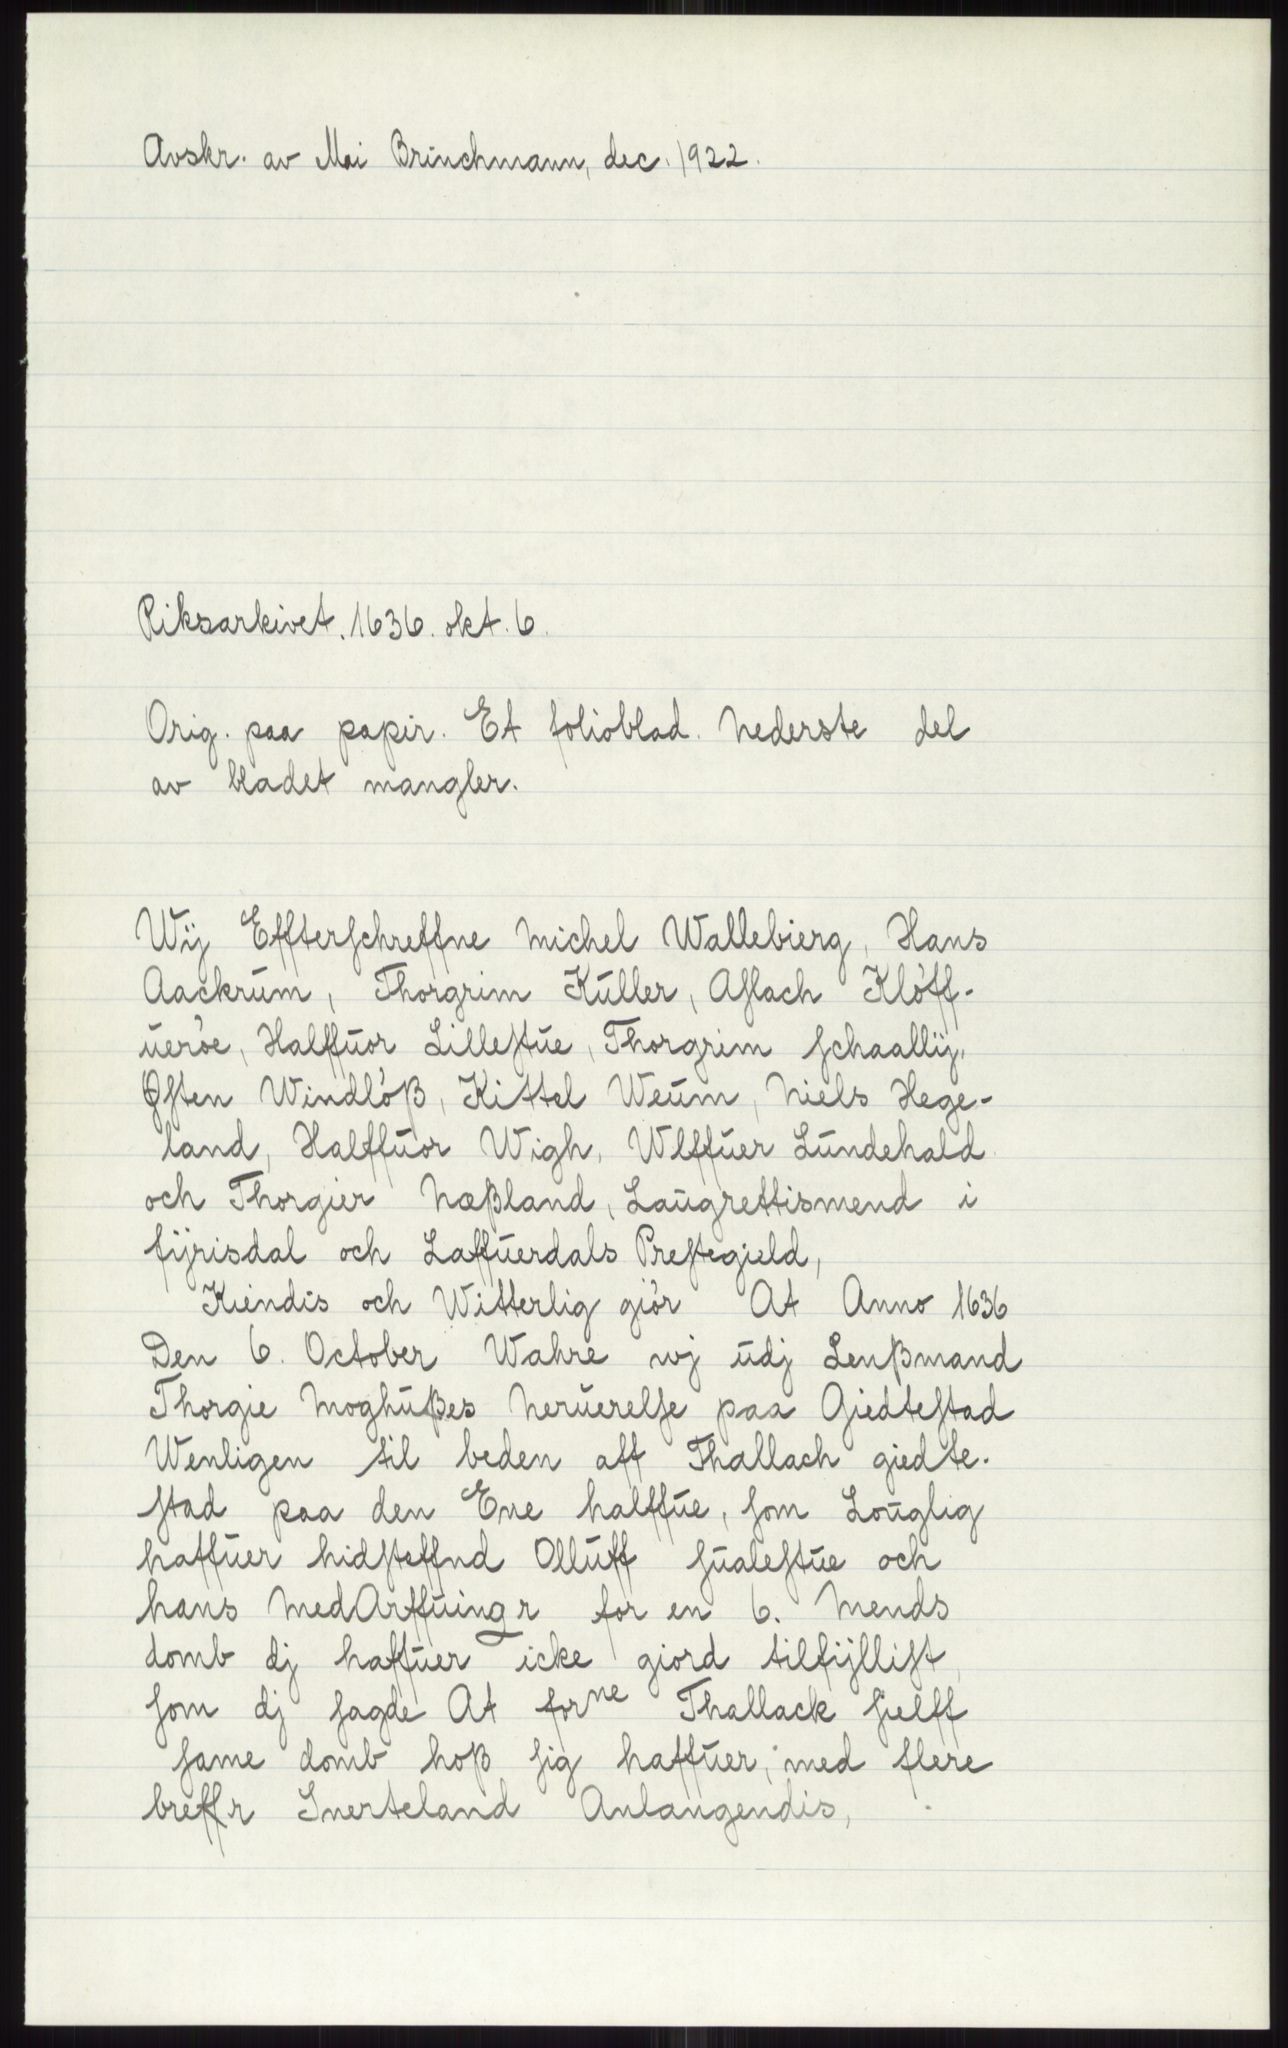 Avskr. av Mai Brinchmann, dec. 1922.
Riksarkivet. 1636. okt. 6.
Orig. paa papir. Et folioblad. Nederste del
av bladet mangler.
Wij Effterschreffne Michel Wallebierg, Hans
Aackrum, Thorgrim Kuller, Aslach Klöff-
ueröe, Halffuor Lillestue, Thorgrim schaallij,
Østen Windlöß, Kittel Weum, Niels Hege-
land, Halffuor Wigh, Wlffuer Lundehald
och Thorgier Næßland, Laugrettismend i
fijrisdal och Laffuerdals Prestegield,
Kiendis och Witterlig giör At Anno 1636
Den 6. October Wahre wj udj Lenßmand
Thorgie Moghußes Neruerelse paa Giedtestad
Wenligen til beden aff Thallach giedte-
stad paa den Ene halffue, som Louglig
haffuer hidsteffnd Olluff sualestue och
hans MedArffuingr for en 6. Mends
domb dj haffuer icke giord tilfijllist,
som dj sagde At forne Thallack sielff
same domb hoß sig haffuer, med flere
breffr Snerteland Anlangendis,